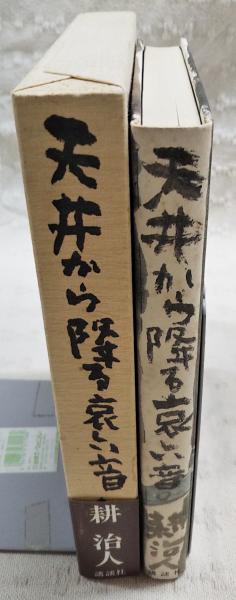 天井から降る哀しい音
耕治人
講談社
天井から降る哀しい音
耕治人
講談社